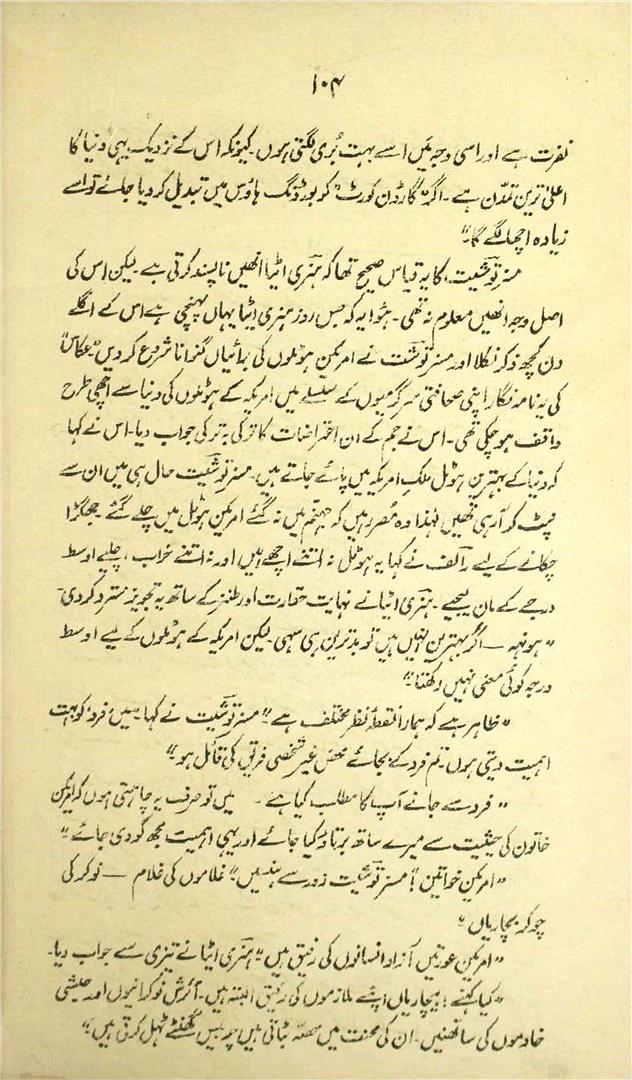 ۱۰۴
نفرت ہے اور اسی وجہ میں اسے بہت بُری لگتی ہوں۔ کیونکہ اس کے نزدیک یہی دنیا کا
اعلیٰ ترین تمدّن ہے۔ اگر "گارڈن کورٹ" کو بورڈنگ ہاؤس میں تبدیل کر دیا جائے تو اسے
زیادہ اچھا لگے گا۔"
مسز توشیت کا یہ قیاس صحیح تھا کہ ہنری اٹیا انھیں ناپسند کرتی ہے۔ لیکن اس کی
اصل وجہ انھیں معلوم نہ تھی۔ ہوا یہ کہ جس روز ہنری اٹیا یہاں پہنچی ہے اس کے اگلے
دن کچھ ذکر نکلا اور مسز توشیت نے امریکن ہوٹلوں کی برائیاں گنوانا شروع کر دیں۔ "عکاس"
کی یہ نامہ نگار اپنی صحافتی سرگرمیوں کے سلسلے میں امریکہ کے ہوٹلوں کی دنیا سے اچھی طرح
واقف ہو چکی تھی۔ اس نے جم کے ان اعتراضات کا ترکی بہ ترکی جواب دیا۔ اس نے کہا
کہ دنیا کے بہترین ہوٹل ملک امریکہ میں پائے جاتے ہیں۔ مسز توشیت حال ہی میں ان سے
نپٹ کر آرہی تھیں لہٰذا وہ مُصر رہیں کہ جہنّم میں نہ گئے امریکن ہوٹل میں چلے گئے۔ جھگڑا
چکانے کے لیے رالف نے کہا یہ ہوٹل نہ اتنے اچھے ہیں اور نہ اتنے خراب، چلیے اوسط
درجے کے مان لیجیے۔ ہنری اٹیا نے نہایت حقارت اور طنز کے ساتھ یہ تجویز مسترد کر دی۔
"ہونہہ — اگر بہترین نہیں ہیں تو بدترین ہی سہی۔ لیکن امریکہ کے ہوٹلوں کے لیے اوسط
درجہ کوئی معنی نہیں رکھتا۔"
"ظاہر ہے کہ ہمارا نقطۂ نظر مختلف ہے۔" مسز توشیت نے کہا۔ "میں فرد کو بہت
اہمیت دیتی ہوں۔ تم فرد کے بجائے محض غیر شخصی فریق کی قائل ہو۔"
"فرد سے جانے آپ کا مطلب کیا ہے۔ میں تو صرف یہ چاہتی ہوں کہ امریکن
خاتون کی حیثیت سے میرے ساتھ برتاؤ کیا جائے اور یہی اہمیت مجھ کو دی جائے۔"
"امریکن خواتین!" مسز توشیت زور سے ہنسیں۔ "غلاموں کی غلام — نوکر کی
چوکر بچاریاں۔"
"امریکن عورتیں آزاد انسانوں کی رفیق ہیں۔" ہنری اٹیا نے تیزی سے جواب دیا۔
"کیا کہنے! بیچاریاں اپنے ملازموں کی رفیق البتہ ہیں۔ آئرش نوکرانیوں اور حبشی
خادموں کی ساتھنیں۔ ان کی محنت میں حصہ بٹاتی ہیں چوبیس گھنٹے ٹہل کرتی ہیں۔"